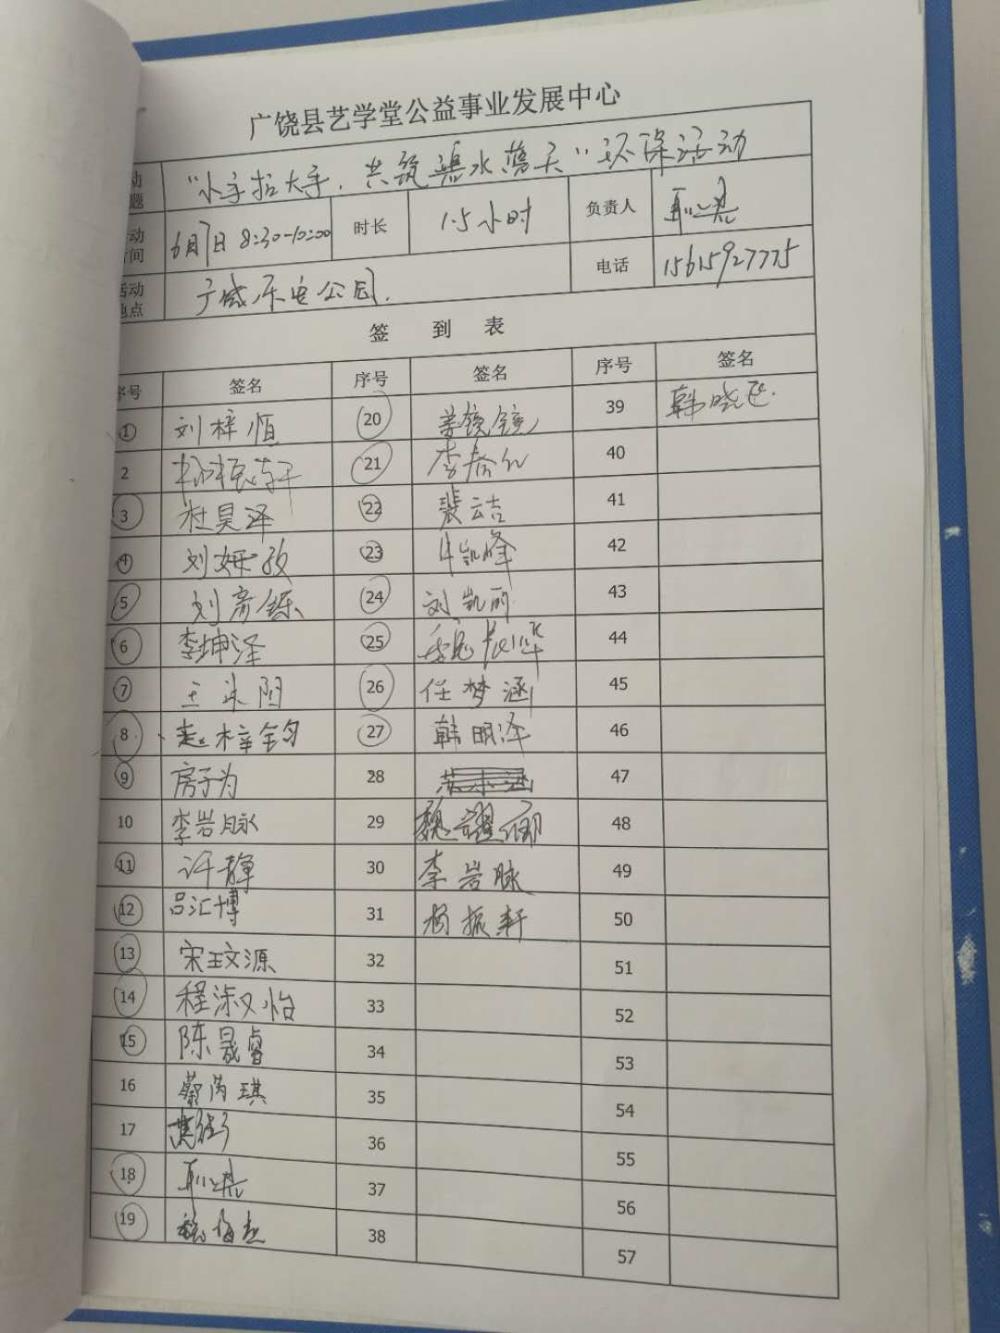 广饶县艺学堂公益事业发展中心
动题 "小手拉大手，共筑碧水蓝天"环保活动
动间 6月7日 8:30-10:00 时长 1.5小时 负责人
活动地点 广饶乐电公园. 电话 15615927775
签 到 表
序号 签名 序号 签名 序号 签名
1 刘梓恒 20 39 韩晓飞
2 21 李春红 40
3 杜昊泽 22 裴云吉 41
4 刘妍孜 23 牛凯峰 42
5 刘彦铄 24 刘凯丽 43
6 李坤泽 25 44
7 26 任梦涵 45
8 赵梓钧 27 韩明泽 46
9 房子为 28 47
10 李岩脉 29 48
11 许静 30 李岩脉 49
12 吕汇博 31 杨振轩 50
13 宋玟源 32 51
14 程淑怡 33 52
15 陈晟睿 34 53
16 蔡芮琪 35 54
17 36 55
18 37 56
19 38 57